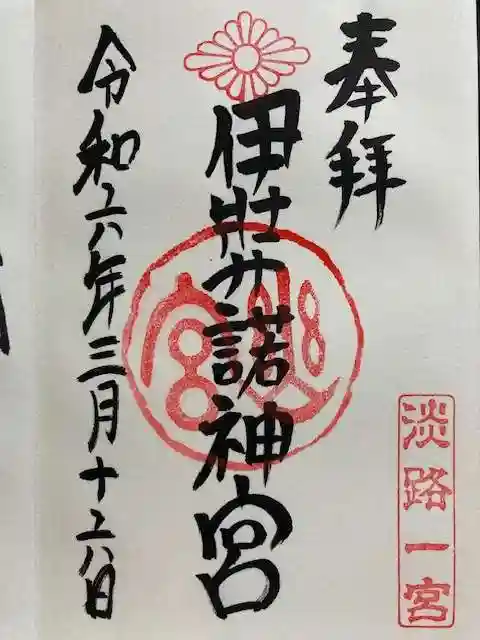 奉拝
淡路一宮
伊弉諾神宮
令和六年三月十六日